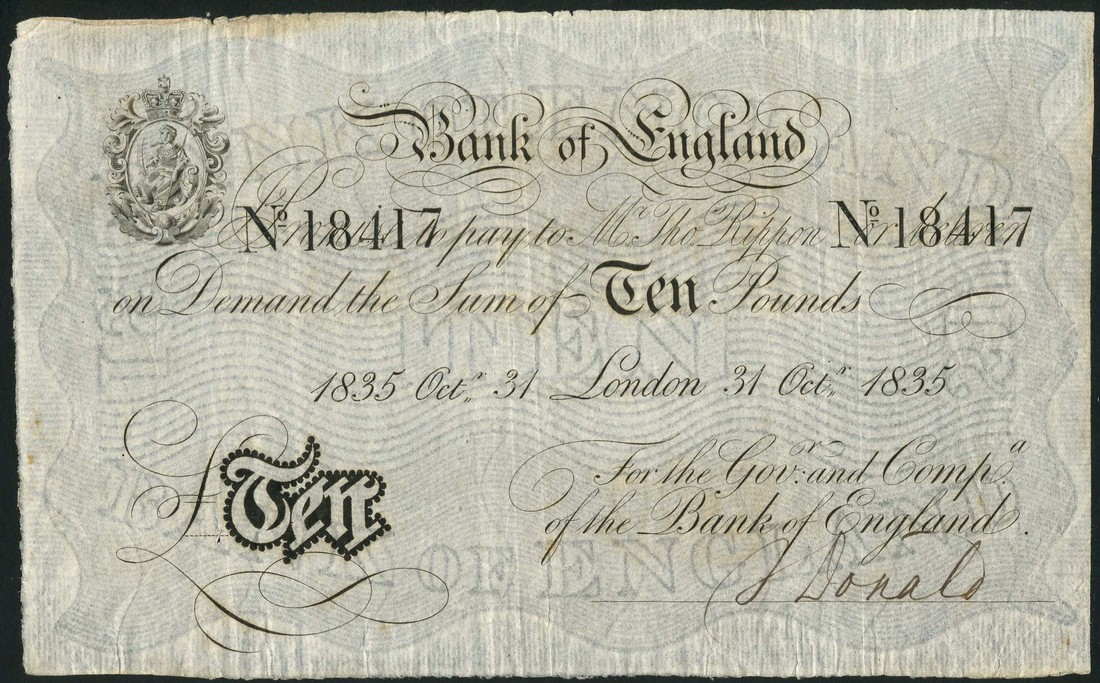 Bank of England
I Promise to pay to Mr. Tho. Rippon or bearer
No 18417 No 18417
on Demand the Sum of Ten Pounds
1835 Octr. 31 London 31 Octr. 1835
£Ten
For the Govr. and Compa.
of the Bank of England.
J Donald
TEN
OF ENGLAND